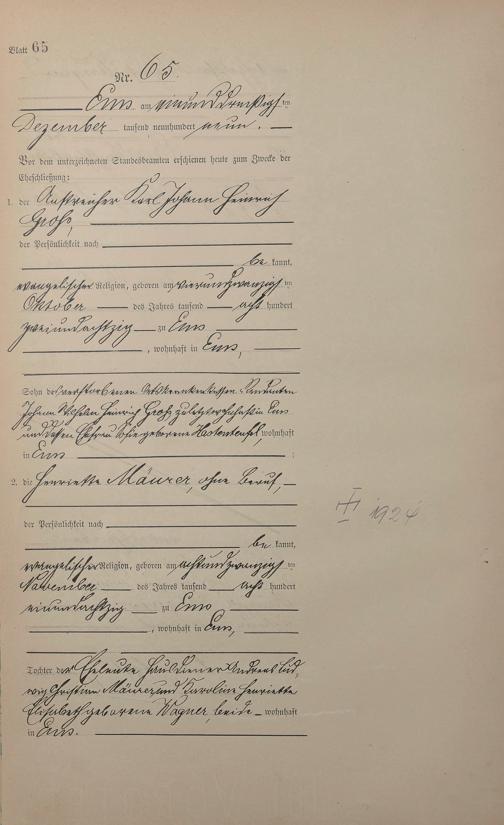 Blatt 65
Nr. 65.
Ems am einunddreißigsten
Dezember tausend neunhundert neun.
Vor dem unterzeichneten Standesbeamten erschienen heute zum Zwecke der
Eheschließung:
1. der Anstreicher Karl Johann Heinrich
Groß,
der Persönlichkeit nach
be kannt,
evangelischer Religion, geboren am vierundzwanzigsten
Oktober des Jahres tausend acht hundert
zweiundachtzig zu Ems
, wohnhaft in Ems,
Sohn des verstorbenen Ortskrankenkassen-Rendanten
Johann Wilhelm Heinrich Groß zuletzt wohnhaft in Ems
und dessen Ehefrau geborene wohnhaft
in Ems
2. die Henriette Mäurer, ohne Beruf,
der Persönlichkeit nach
be kannt,
evangelischer Religion, geboren am achtundzwanzigsten
November des Jahres tausend acht hundert
einundachtzig zu Ems
, wohnhaft in Ems,
Tochter der Eheleute Hausdiener Andreas Lud-
wig Christian Mäurer und Karoline Henriette
Elisabeth geborene Wagner, beide wohnhaft
in Ems.
1924